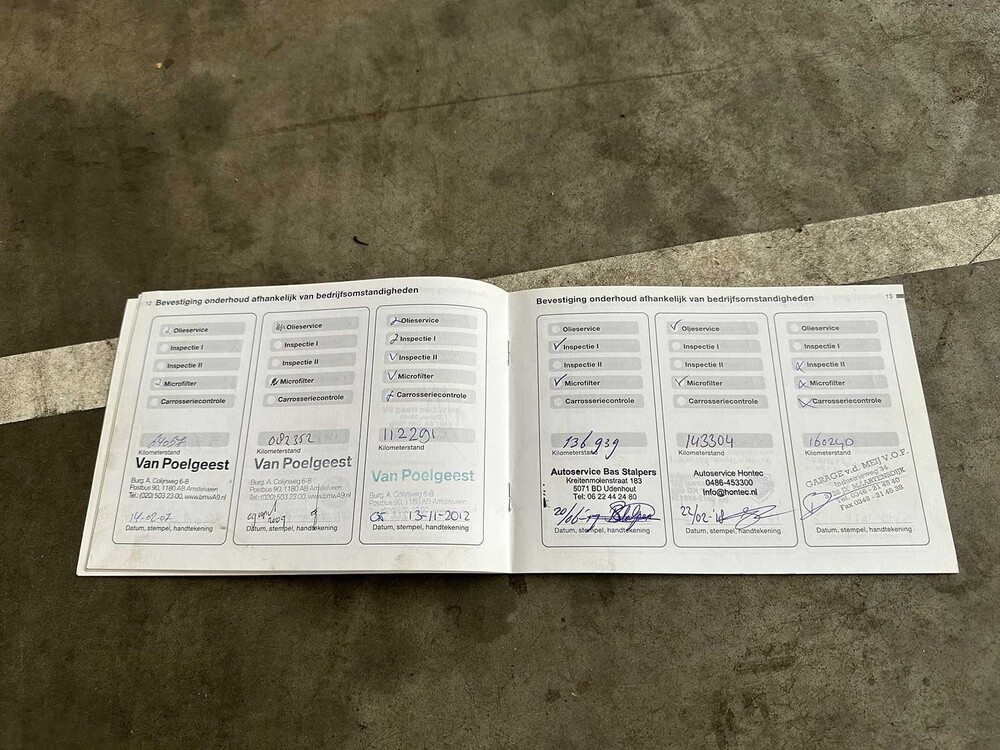 12 Bevestiging onderhoud afhankelijk van bedrijfsomstandigheden
Olieservice
Inspectie I
Inspectie II
Microfilter
Carrosseriecontrole
64057
Kilometerstand
Van Poelgeest
Burg. A. Colijnweg 6-8
Postbus 90, 1180 AB Amstelveen
Tel.: (020) 503 23 00, www.bmwA9.nl
14-02-07
Datum, stempel, handtekening
Olieservice
Inspectie I
Inspectie II
Microfilter
Carrosseriecontrole
082352
Kilometerstand
Van Poelgeest
Burg. A. Colijnweg 6-8
Postbus 90, 1180 AB Amstelveen
Tel.: (020) 503 23 00, www.bmwA9.nl
Datum, stempel, handtekening
Olieservice
Inspectie I
Inspectie II
Microfilter
Carrosseriecontrole
112291
Kilometerstand
Van Poelgeest
Burg. A. Colijnweg 6-8
Postbus 90, 1180 AB Amstelveen
13-11-2012
Datum, stempel, handtekening
Bevestiging onderhoud afhankelijk van bedrijfsomstandigheden 13
Olieservice
Inspectie I
Inspectie II
Microfilter
Carrosseriecontrole
136939
Kilometerstand
Autoservice Bas Stalpers
Kreitenmolenstraat 183
5071 BD Udenhout
Tel: 06 22 44 24 80
20/06-17
Datum, stempel, handtekening
Olieservice
Inspectie I
Inspectie II
Microfilter
Carrosseriecontrole
143304
Kilometerstand
Autoservice Hontec
0486-453300
Info@hontec.nl
22/02-'18
Datum, stempel, handtekening
Olieservice
Inspectie I
Inspectie II
Microfilter
Carrosseriecontrole
160240
Kilometerstand
GARAGE v.d. MEIJ V.O.F.
Industrieweg 34
MAARTENSDIJK
Tel. 0346 - 21 45 40
Fax 0346 - 21 45 38
Datum, stempel, handtekening